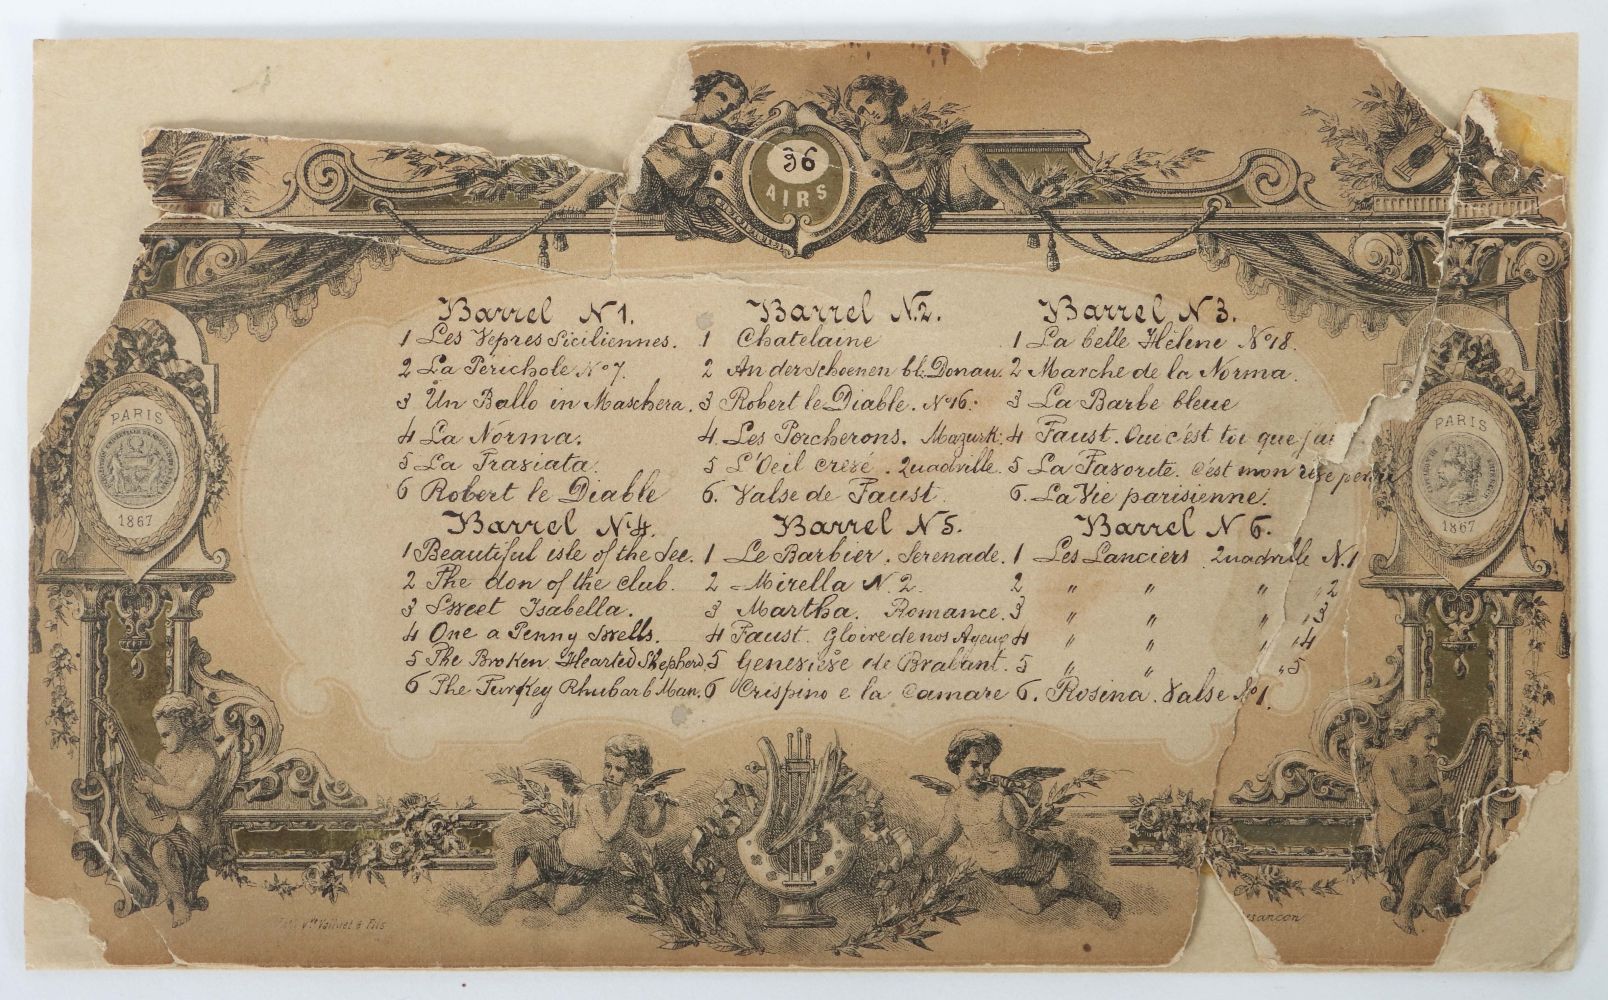 36
AIRS
PARIS
1867
PARIS
1867
Barrel N 1.
1 Les Vepres Siciliennes.
2 La Perichole No 7.
3 Un Ballo in Maschera.
4 La Norma.
5 La Traviata.
6 Robert le Diable
Barrel N. 2.
1 Chatelaine
2 An der schoenen bl. Donau.
3 Robert le Diable. No 16.
4. Les Porcherons. Mazurk.
5 L'Oeil crevé. Quadrille.
6. Valse de Faust.
Barrel N 3.
1 La belle Hélène No 18.
2 Marche de la Norma.
3 La Barbe bleue
4 Faust. Oui c'est toi que j'ai
5 La Favorite. c'est mon rêve perdu
6. La Vie parisienne.
Barrel No 4.
1 Beautiful isle of the See.
2 The don of the club.
3 Sweet Isabella.
4 One a Penny Swells.
5 The Broken Hearted Shepherd
6 The Turkey Rhubarb Man.
Barrel N 5.
1 Le Barbier. Serenade.
2 Mirella N. 2.
3 Martha. Romance.
4 Faust. Gloire de nos Ayeux
5 Geneviève de Brabant.
6 Crispino e la Comare
Barrel N 6.
1 Les Lanciers Quadrille N. 1
2 " " " " 2
3 " " " " 3
4 " " " " 4
5 " " " " 5
6. Rosina. Valse No 1.
Vtt Valluet & Fils
esancon